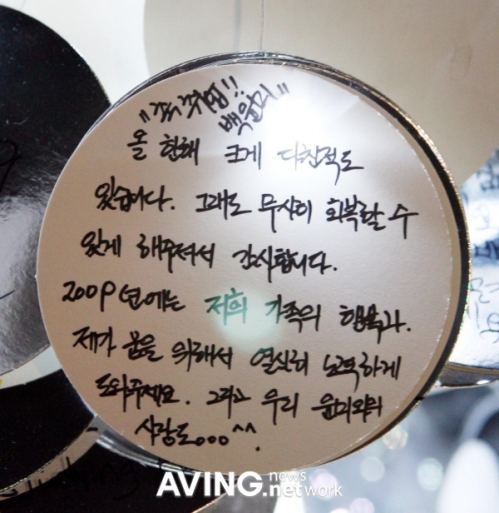 올 한해 크게 다친적도
있습니다. 그래도 무사히 회복할 수
있게 해주셔서 감사합니다.
2009년에는 저희 가족의 행복과.
제가 꿈을 위해서 열심히 노력하게
도와주세요. 그리고 우리 윤미와의
사랑도ooo^^.
AVING news
.network